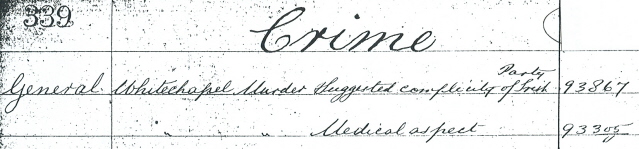 339
Crime
General. Whitechapel Murder Suggested complicity of Irish Party 93867
" " " Medical aspect 93305